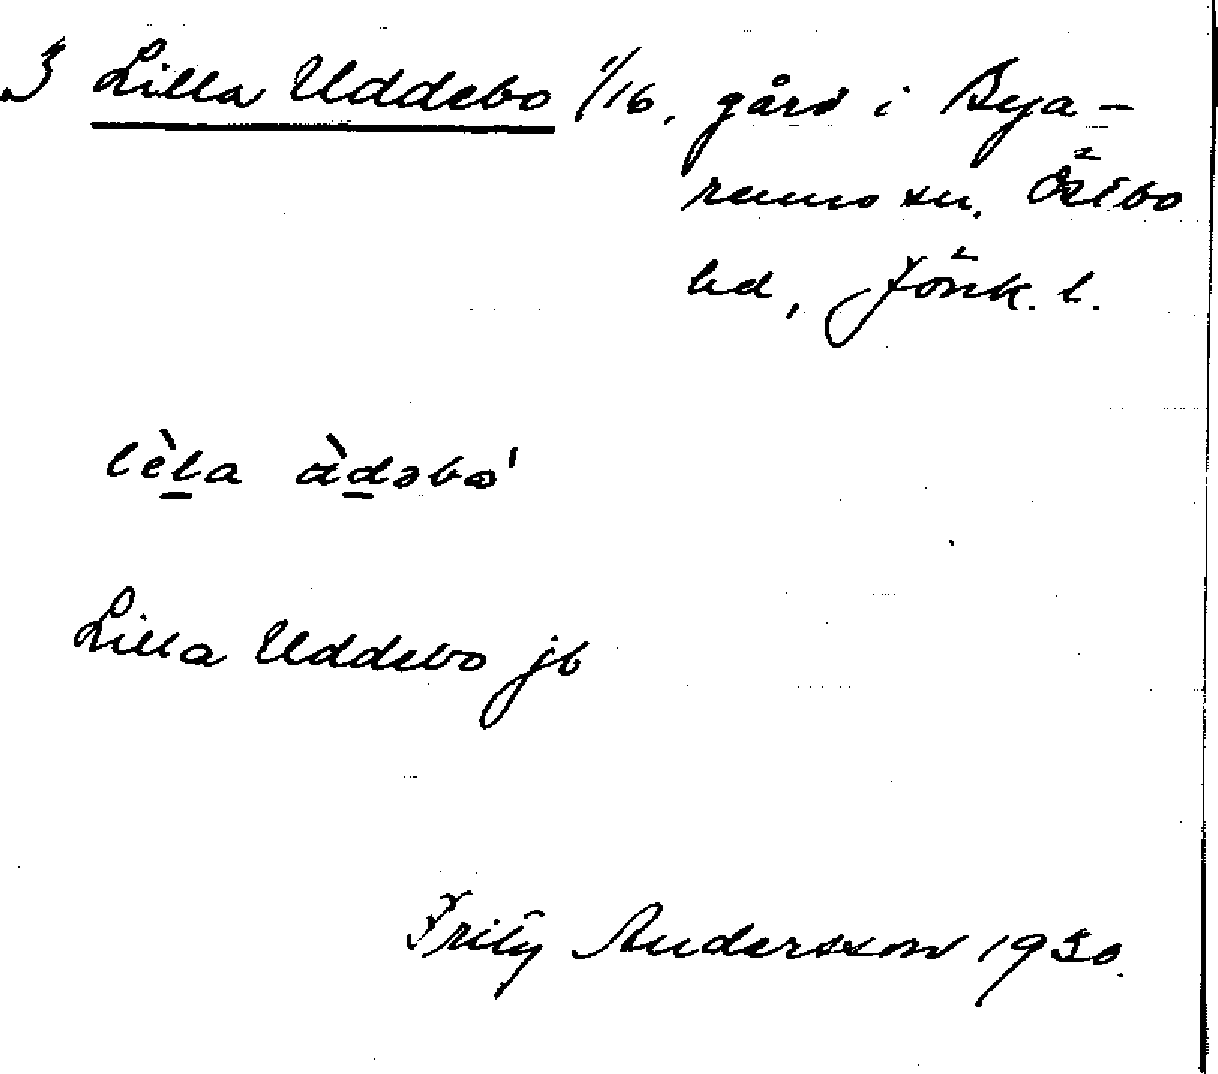 3 Lilla Uddebo 1/16, gård i Bya-
rums sn, Östbo
hd, Jönk. l.
lèla àdəbo'
Lilla Uddebo jb
Fritz Andersson 1930.